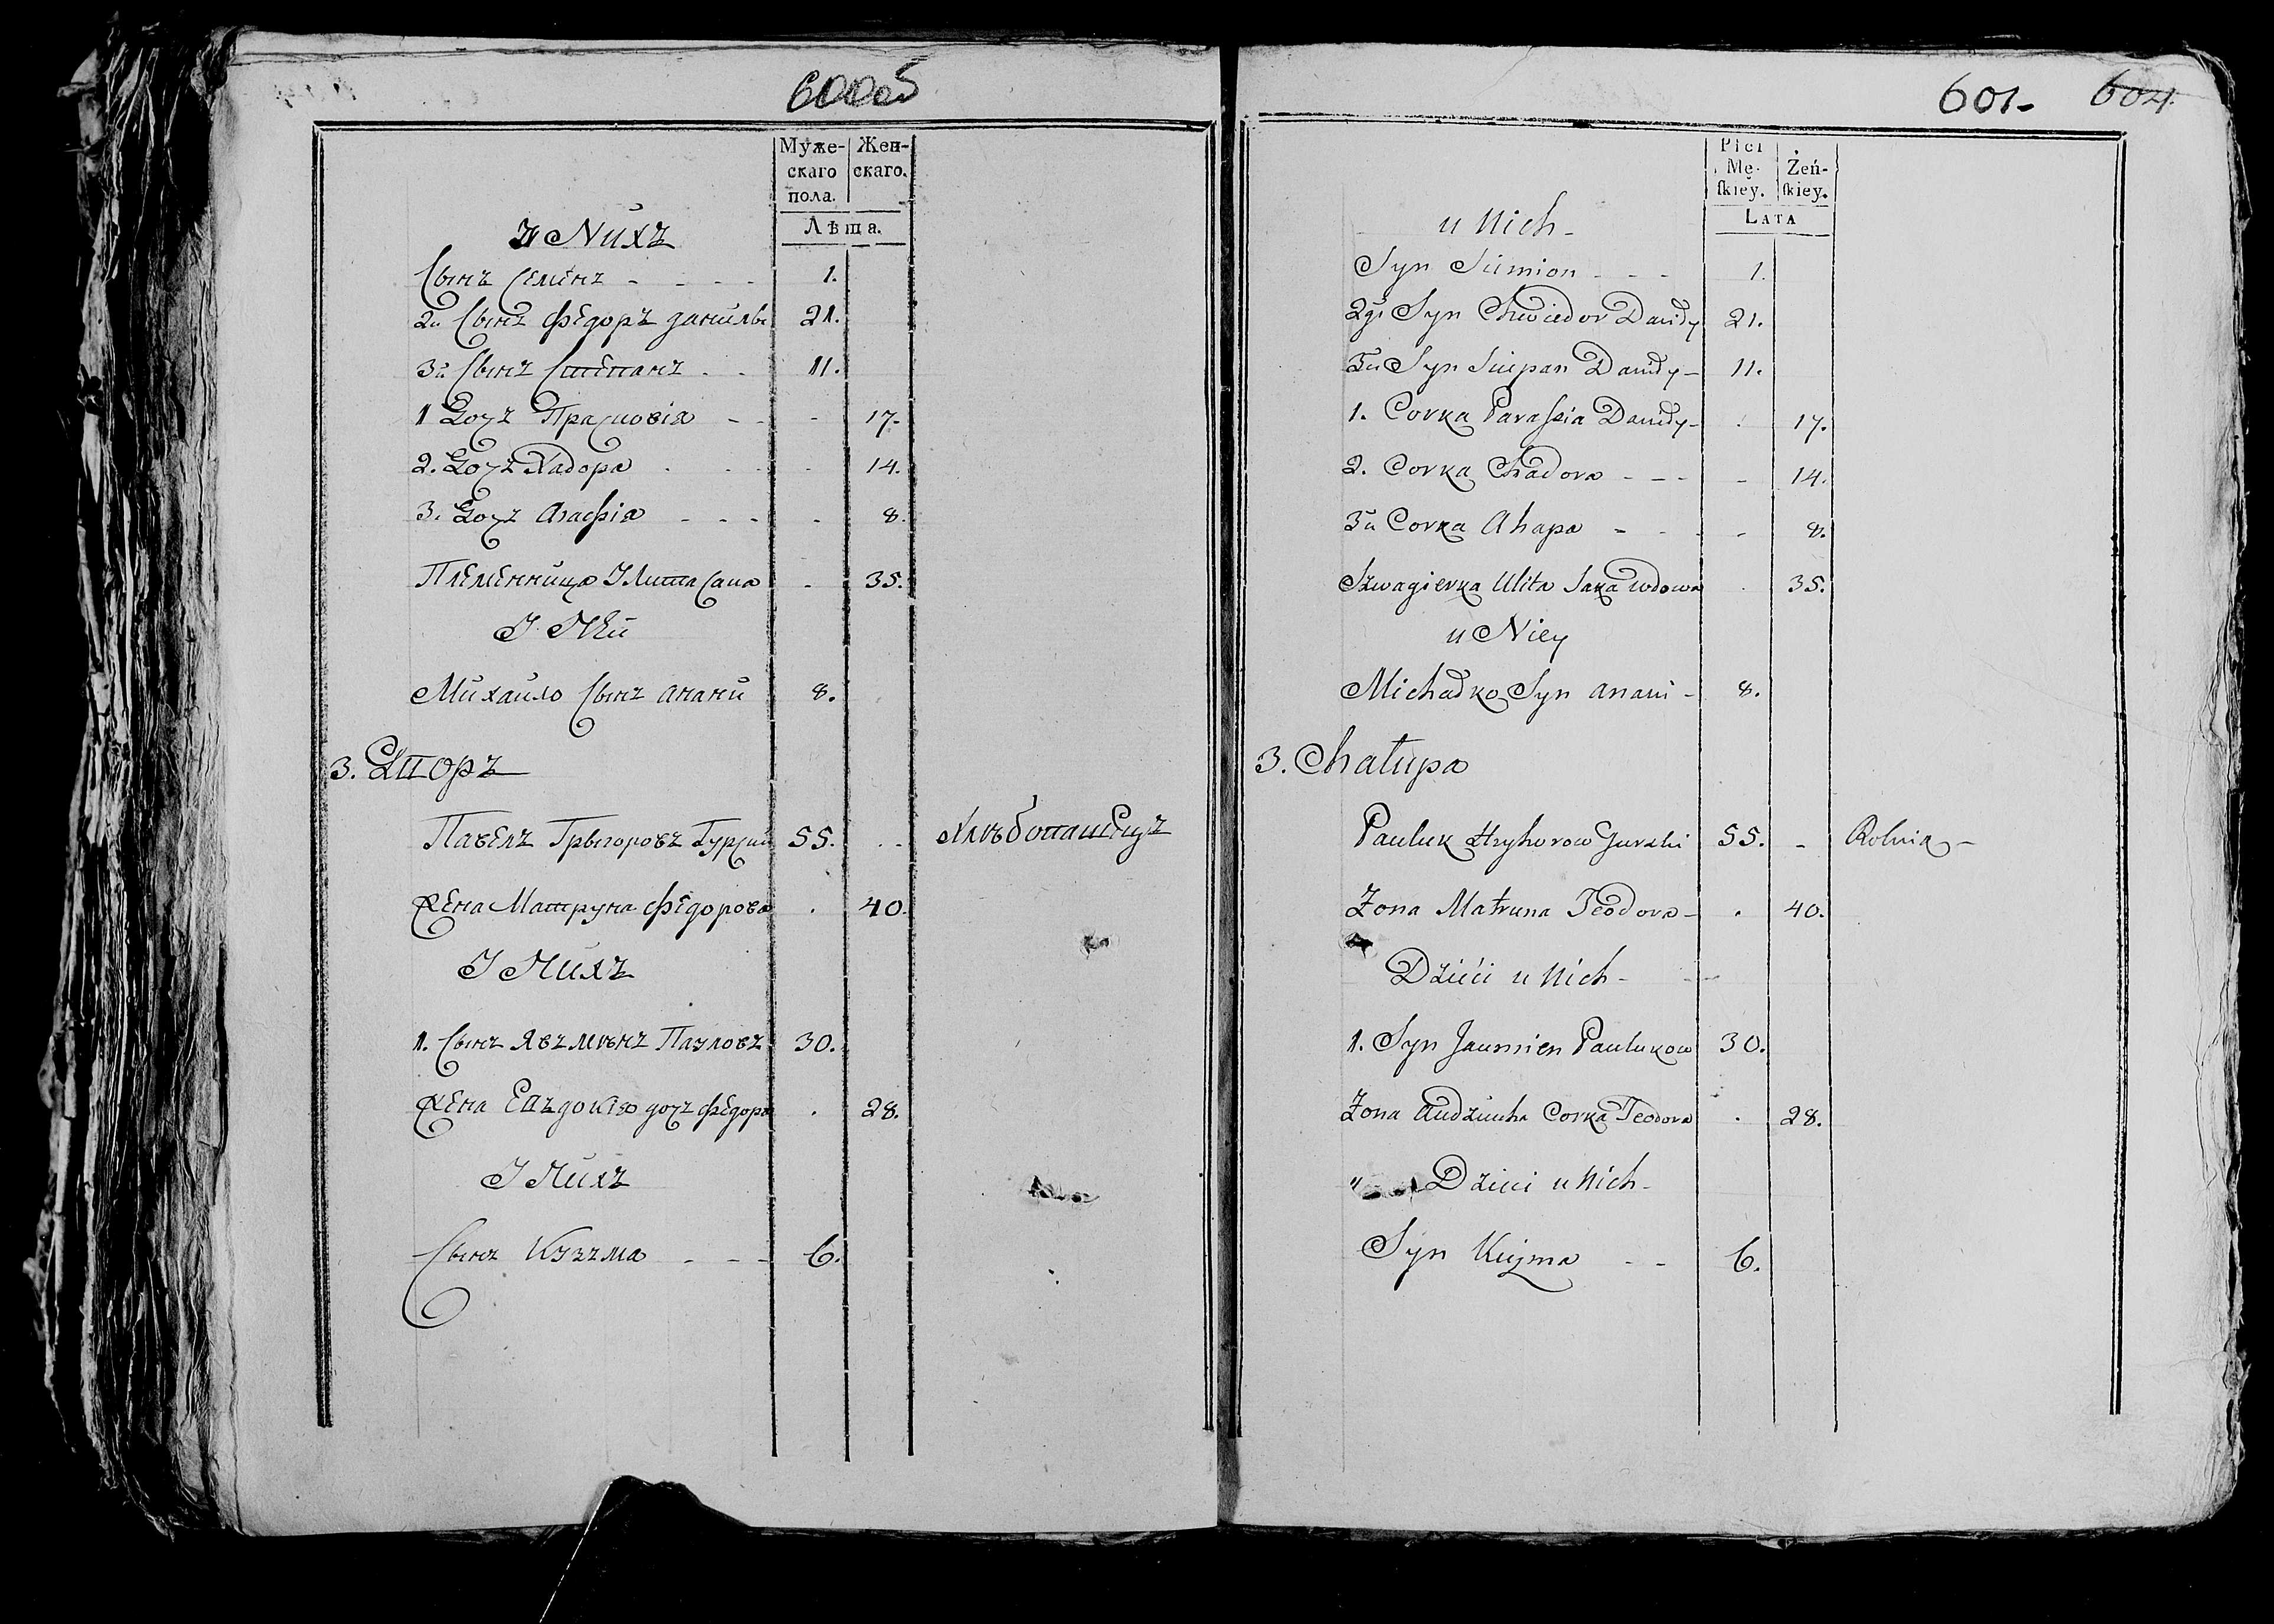 600об
Муже-
скаго
пола.
Жен-
скаго.
Лѣта.
У Нихъ
Сынъ Семенъ - - - - 1.
2й Сынъ Федоръ 21.
3й Сынъ Степанъ - - 11.
1 Дочъ Прасковія - - - 17.
2. Дочъ Хадора - - - - 14.
3. Дочъ Агафія - - - - 8.
Племенница Улита - 35.
У Ней
Михайло Сынъ Анани 8.
3. Дворъ
Павелъ Грыгоровъ Гурский 55. - - Хлѣбопашецъ
Жена Матруна Федорова . 40.
У Нихъ
1. Сынъ Явхмѣнъ Павловъ 30.
Жена Евъдокія дочъ Федора . 28.
У Нихъ
Сынъ Кузма - - - 6.
601- 604.
Płci
Mę-
ſkiey.
Żeń-
ſkiey.
Lata
u Nich -
Syn Siemion - - - 1.
2gi Syn Chwiedor 21.
3ci Syn Sciepan 11.
1. Corka Paraſsia - 17.
2. Corka Chadora - - - - 14.
3a Corka Ahapa - - - - - 8.
Szwagierka Ulita wdowa . 35.
u Niey
Michałko Syn Anani - 8.
3. Chałupa
Pauluk Hryhorow Gurski 55. - Rolnik -
Zona Matruna Teodora - . 40.
Dzieci u Nich -
1. Syn Jaumien Paulukow 30.
Zona Audziucha Corka Teodora . 28.
" Dzieci u Nich -
Syn Kuźma - - 6.